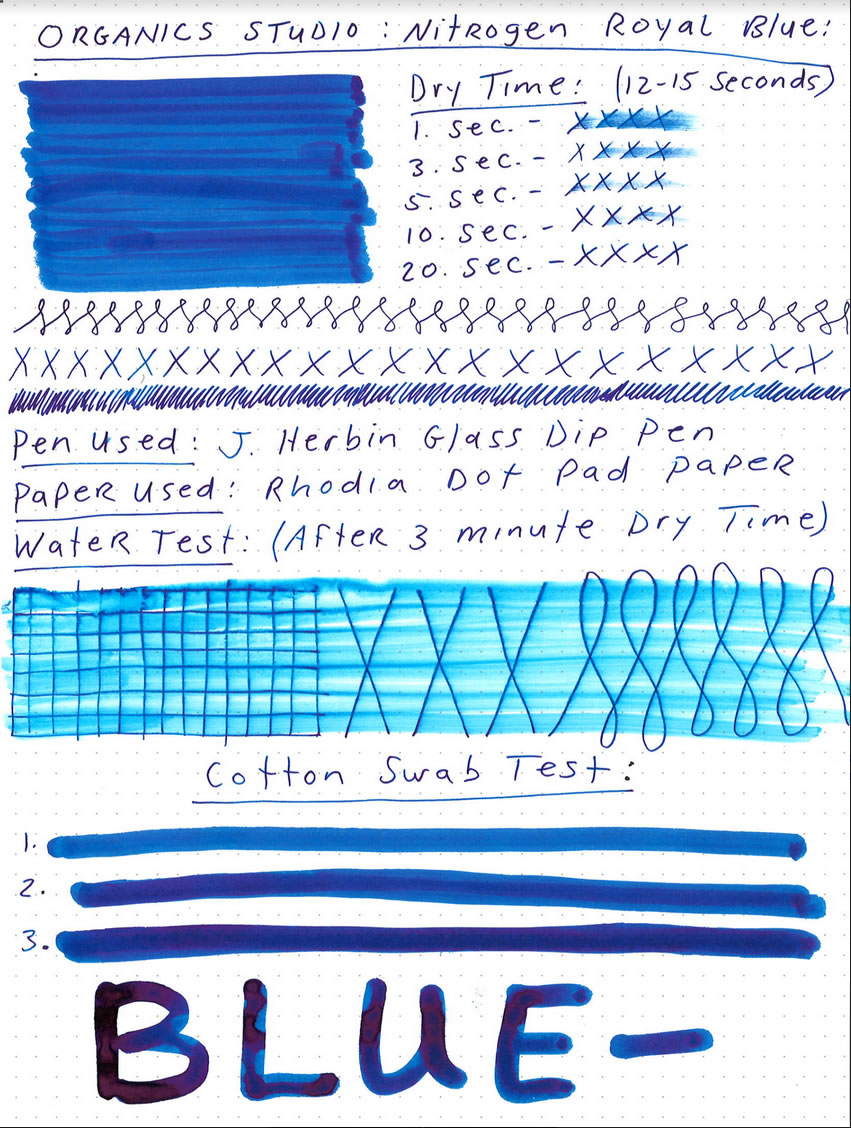 ORGANICS STUDIO : Nitrogen Royal Blue:
Dry Time: (12-15 Seconds)
1. sec. - X X X X
3. sec. - X X X X
5. sec. - X X X X
10. sec. - X X X X
20. sec. - X X X X
X X X X X X X X X X X X X X X X X X X X X
Pen Used: J. Herbin Glass Dip Pen
Paper Used: Rhodia Dot Pad Paper
Water Test: (After 3 minute Dry Time)
X X X
Cotton Swab Test:
1.
2.
3.
BLUE-